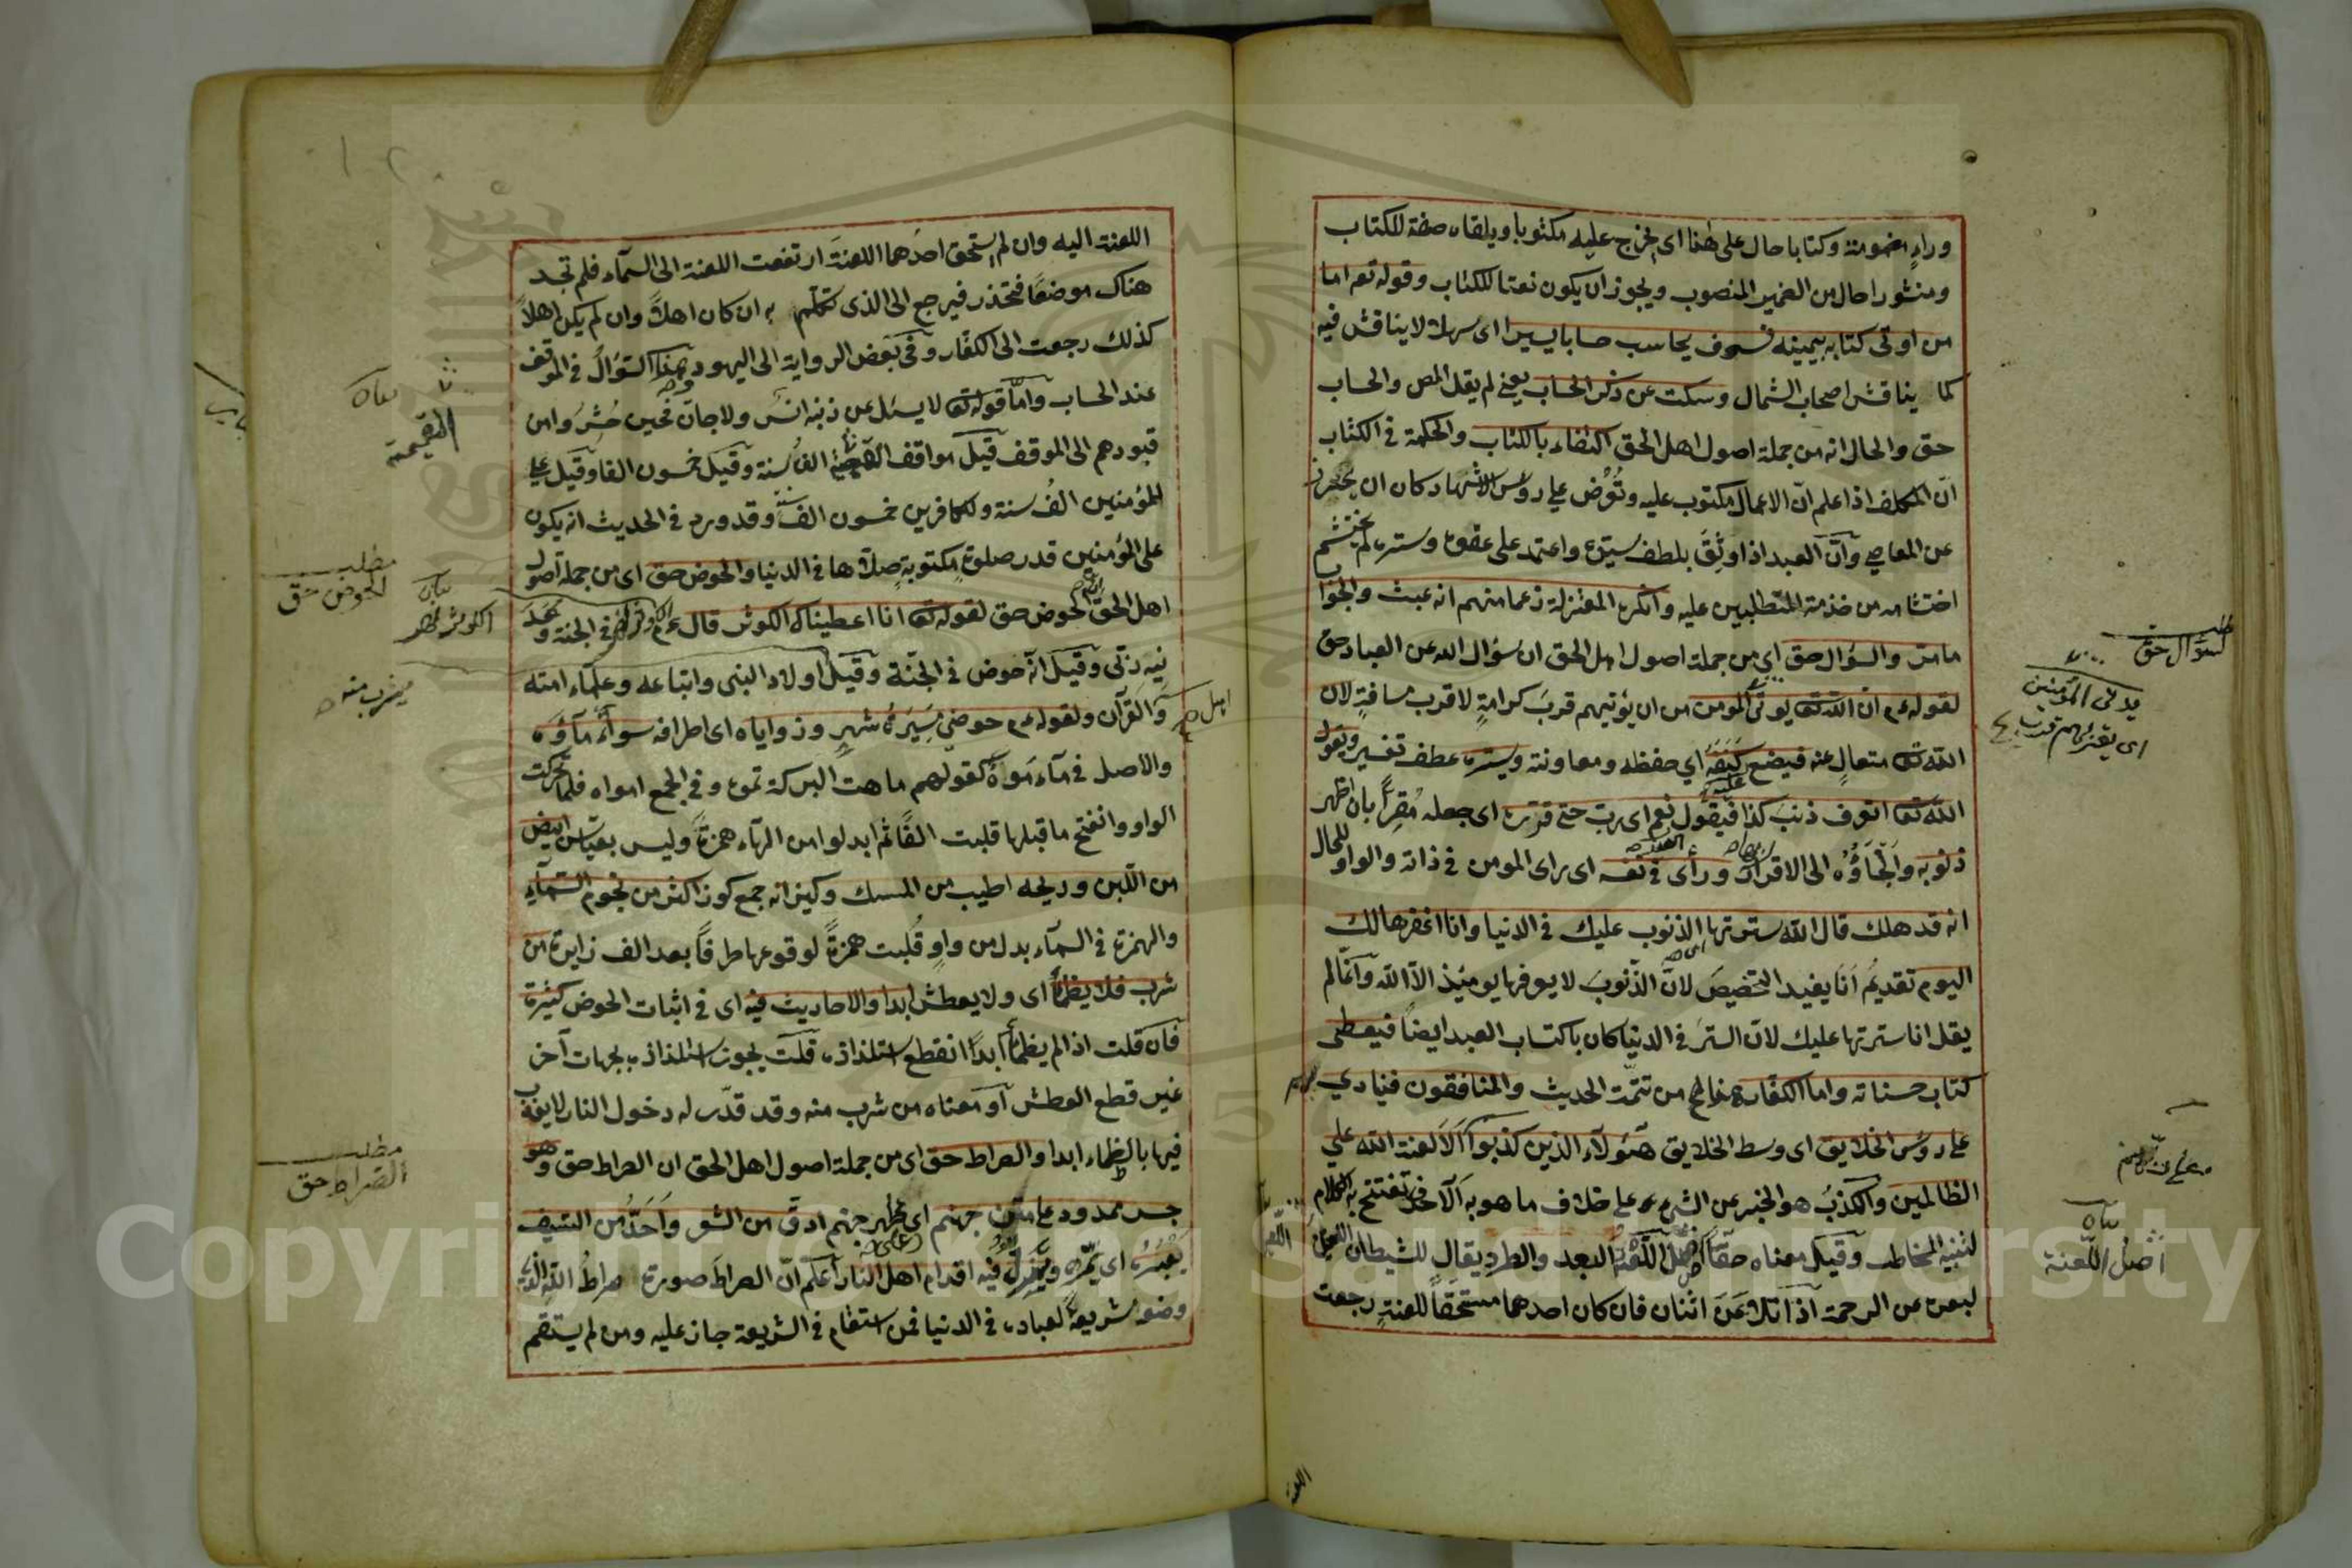 وراءٍ مضمومة وكتابا حال على هذا اى يخرج عليه مكتوبا ويلقاه صفة للكتاب
ومنشورا حال من الضمير المنصوب ويجوز ان يكون نعتا للكتاب وقوله تع اما
من اوتى كتابه بيمينه فسوف يحاسب حسابا يسيرا اى سهلا لا يناقش فيه
كما يناقش اصحاب الشمال وسكت عن ذكر الحساب يعنى لم يقل المص والحساب
حق والحال انه من جملة اصول اهل الحق اكتفاء بالكتاب والحكمة فى الكتاب
انّ المكلف اذا علم انّ الاعمال مكتوب عليه وتُعرض على رؤس الاشهاد كان ان يحترز
عن المعاصى وانّ العبد اذا وثِقَ بلطف سيّده واعتمد على عفوه وستره لم يحتشم
احتشامه من خدمة المتطلبين عليه وانكره المعتزلة زعما منهم انه عبث والجواب
ما مر والسؤال حق اى من جملة اصول اهل الحق ان سؤال الله عن العباد حق
لقوله عم ان الله تعا يدنى المؤمن من ان يؤتيهم قربَ كرامةٍ لا قرب مسافةٍ لان
الله تعا متعالٍ عنه فيضع كنفَه اى حفظه ومعاونته ويستره عطف تفسير ويقول
الله تعا اتعرف ذنب كذا فيقول نعم اى رب حتى قرّره اى جعله مُقِرّاً بان اظهر
ذنوبه والجَأَه الى الاقرار ورأى فى نفسه اى يرى المومن فى ذاته والواو للحال
انه قد هلك قال الله سترتها اى الذنوب عليك فى الدنيا وانا اغفرها لك
اليوم تقديمُ اَنَا يفيد التخصيصَ لانّ الذّنوبَ لا يغفرها يومئِذ الاّ الله وانّما لم
يقل انا سترتها عليك لانّ السترَ فى الدنيا كان باكتساب العبد ايضاً فيعطى
كتاب حسناته واما الكفّار من تتمّة الحديث والمنافقون فينادي بهم
على رؤس الخلايق اى وسط الخلايق هٰؤلآء الذين كذبوا اَلاَ لعنة الله على
الظالمين والكذبُ هو الخبر عن الشىء على خلاف ما هو به اَلاَ حرف تفتتح به الكلام
لتنبيه المخاطب وقيل معناه حقّاً اصل اللّعنة البعد والطرد يقال للشيطان اللعين
لبعده عن الرحمة اذا تلاعَنَ اثنان فان كان احدهما مستحقّاً للعنةِ رجعت
اللعنة
مطلب
السؤال حق
يدنى المؤمنين
اى يقرّبهم
بيان
اصل اللّعنة
اللعنة اليه وان لم يستحق احدهما اللعنةَ ارتفعت اللعنة الى السمآء فلم تجد
هناك موضعًا فتحذر فيرجع الى الذى تكلّم به ان كان اهلاً وان لم يكن اهلاً
كذلك رجعت الى الكفّار وفى بعض الرواية الى اليهود وهذا السّؤال فى الموقف
عند الحساب وامّا قوله تعا لا يسئل عن ذنبه انسٌ ولا جانّ فحين حُشِرُوا من
قبورهم الى الموقف قيل مواقف القيمة الفُ سنة وقيل خمسون الفا وقيل على
المؤمنين الفُ سنة وللكافرين خمسون الف وقد ورد فى الحديث انه يكون
على المؤمنين قدر صلوةٍ مكتوبةٍ صلاّها فى الدنيا والحوض حق اى من جملة اصول
اهل الحق الحوض حق لقوله تعا انا اعطيناك الكوثر قال عم الكوثر نهر فى الجنة وعَدَ
نيه ربّى وقيل انّه حوض فى الجنّة وقيل اولاد النبى واتباعه وعلمآء امته
والقرآن ولقوله عم حوضى مَسِيَرةُ شهرٍ وزواياه اى اطرافه سوآءٌ مآؤُه
والاصل فى مآء مَوَهٌ كقولهم ماهت البركة تموه وفى الجمع امواه فلمّا تحركت
الواو وانفتح ما قبلها قلبت الفًا ثم ابدلوا من الهآء همزةً وليس بقياسٍ ابيض
من اللّبن وريحه اطيب من المسك وكيزانه جمع كوز اكثر من نجوم السّمآءِ
والهمزة فى السمآء بدل من واوٍ قُلبت همزةً لوقوعها طرفاً بعد الف زايدة من
شرب فلا يظمأ اى ولا يعطش ابدا والاحاديث فيه اى فى اثبات الحوض كثيرة
فان قلت اذا لم يظمأ ابداً انقطع استلذاذه قلت يجوز استلذاذه بجهات آخر
غير قطع العطش او معناه من شرب منه وقد قدّر له دخول النار لا يعذب
فيها بالظماء ابدا والصراط حق اى من جملة اصول اهل الحق ان الصراط حق وهو
جسر ممدود على متن جهنم اى ظهر جهنم ادقّ من الشعر واَحَدُّ من السيف
يَعْبُرُه اى يمرّ فيه اقدام اهل النار اعلم انّ الصراطَ صورة صراطُ الله الذى
وضعه شريعةً لعباده فى الدنيا فمن استقام فى الشريعة جاز عليه ومن لم يستقم
بيان
القيمة
مطلب
الحوض حق
بيان
الكوثر نهر
يشرب منه
مطلب
الصراط حق
Copyright © King Saud University